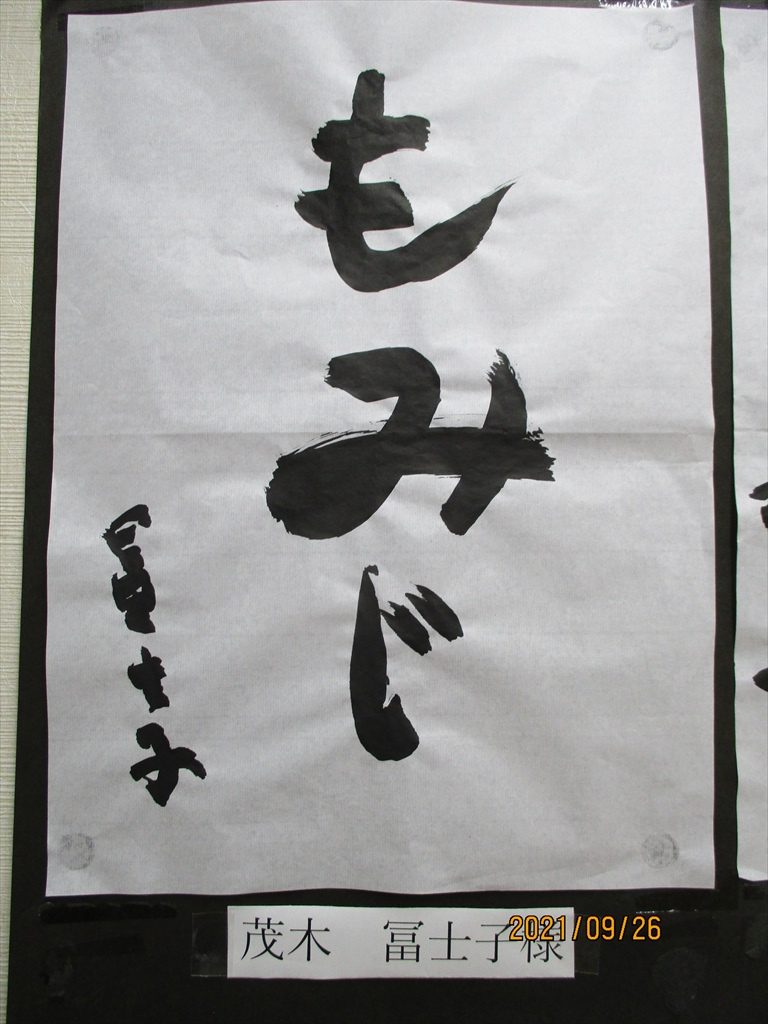 もみじ
冨士子
茂木　冨士子様
2021/09/26